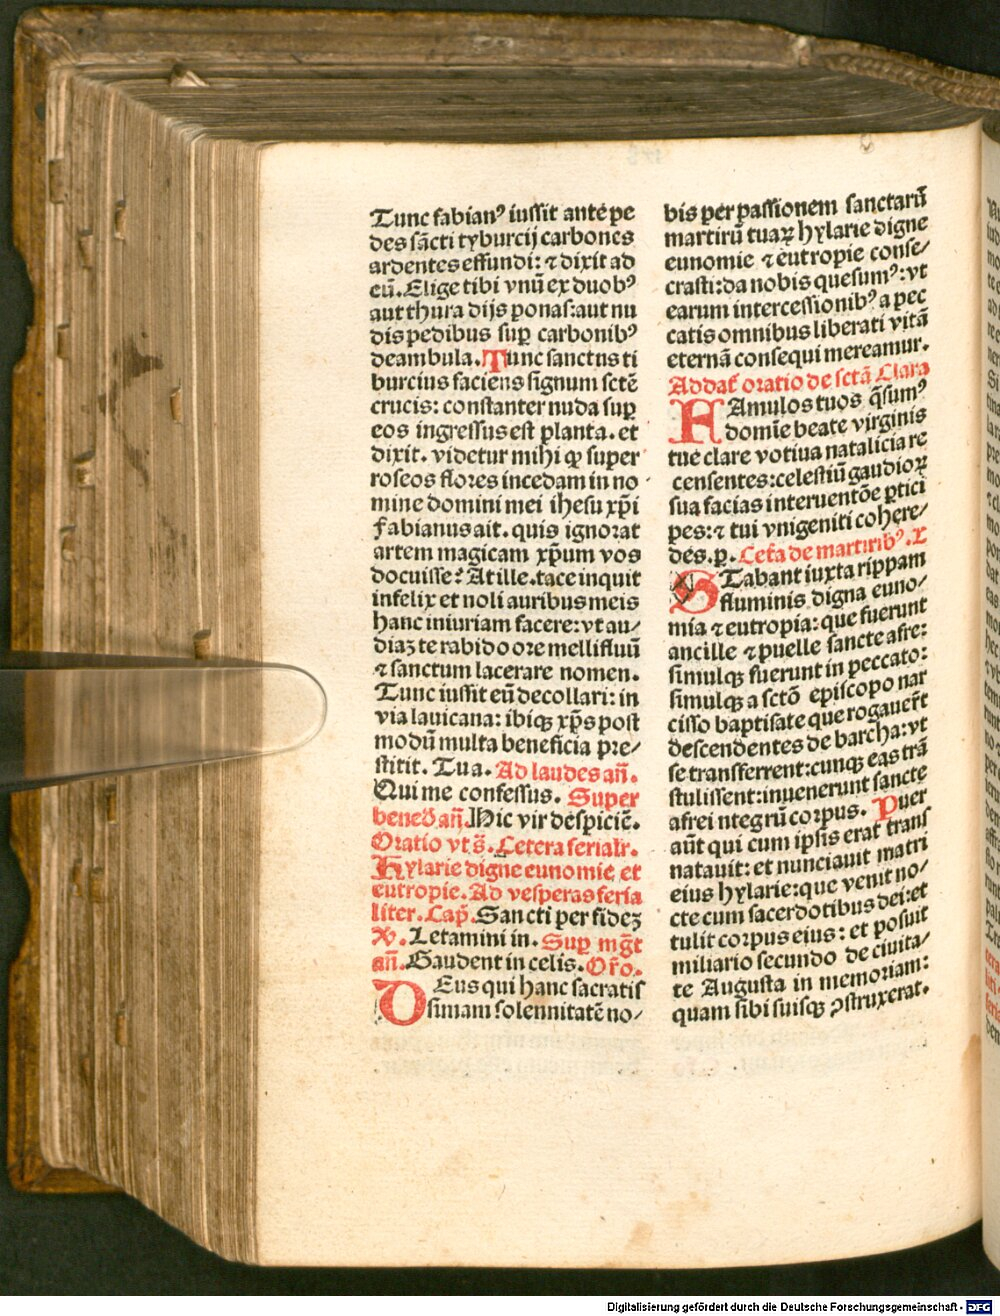 Tunc fabianꝰ iussit ante pe
des sācti tyburcij carbones
ardentes effundi: ⁊ dixit ad
eū. Elige tibi vnū ex duobꝰ
aut thura dijs ponas: aut nu
dis pedibus suꝑ carbonibꝰ
deambula. Tunc sanctus ti
burcius faciens signum sctē
crucis: constanter nuda suꝑ
eos ingressus est planta. et
dixit. videtur mihi ꝙ super
roseos flores incedam in no
mine domini mei ihesu xp̄i
Fabianus ait. quis ignorat
artem magicam xp̄um vos
docuisse? At ille. tace inquit
infelix et noli auribus meis
hanc iniuriam facere: vt au⸗
diaꝫ te rabido ore mellifluū
⁊ sanctum lacerare nomen.
Tunc iussit eū decollari: in
via lauicana: ibiqꝫ xp̄s post
modū multa beneficia pre⸗
stitit. Tua. Ad laudes añ.
Qui me confessus. Super
bened̄ añ. Hic vir despiciē.
Oratio vt s̄. Cetera ferialr̄.
Hylarie digne eunomie et
eutropie. Ad vesperas feria
liter. Cap̄. Sancti per fideꝫ
℟. Letamini in. Suꝑ mḡt
añ. Gaudent in celis. Or̄o.
DEus qui hanc sacratis
simam solennitatē no⸗
bis per passionem sanctarū
martirū tuaꝝ hylarie digne
eunomie ⁊ eutropie conse⸗
crasti: da nobis quesumꝰ: vt
earum intercessionibꝰ a pec
catis omnibus liberati vitā
eternā consequi mereamur.
Addat̄ oratio de sctā Clara
FAmulos tuos q̄sumꝰ
domīe beate virginis
tue clare votiua natalicia re
censentes: celestiū gaudioꝝ
sua facias interuentōe ꝑtici
pes: ⁊ tui vnigeniti cohere⸗
des. p. Cet̄a de martiribꝰ. x
STabant iuxta rippam
fluminis digna euno⸗
mia ⁊ eutropia: que fuerunt
ancille ⁊ puelle sancte afre:
simulqꝫ fuerunt in peccato:
simulqꝫ a sctō episcopo nar
cisso baptisate que rogauer̄t
descendentes de barcha: vt
se transferrent: cunqꝫ eas trā
stulissent: inuenerunt sancte
afre integrū corpus. Puer
aūt qui cum ipsis erat trans
natauit: et nunciauit matri
eius hylarie: que venit no⸗
cte cum sacerdotibus dei: et
tulit corpus eius: et posuit
miliario secundo de ciuita⸗
te Augusta in memoriam:
quam sibi suisqꝫ ꝯstruxerat.
Digitalisierung gefördert durch die Deutsche Forschungsgemeinschaft - DFG